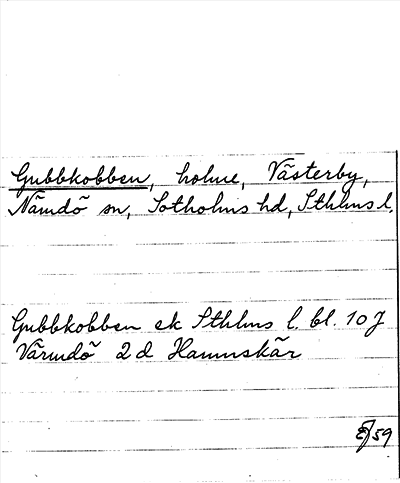 Gubbkobben, holme, Västerby,
Nämdö sn, Sotholms hd, Sthlms l.
Gubbkobben ek Sthlms l. bl. 10J
Värmdö 2d Hamnskär
59